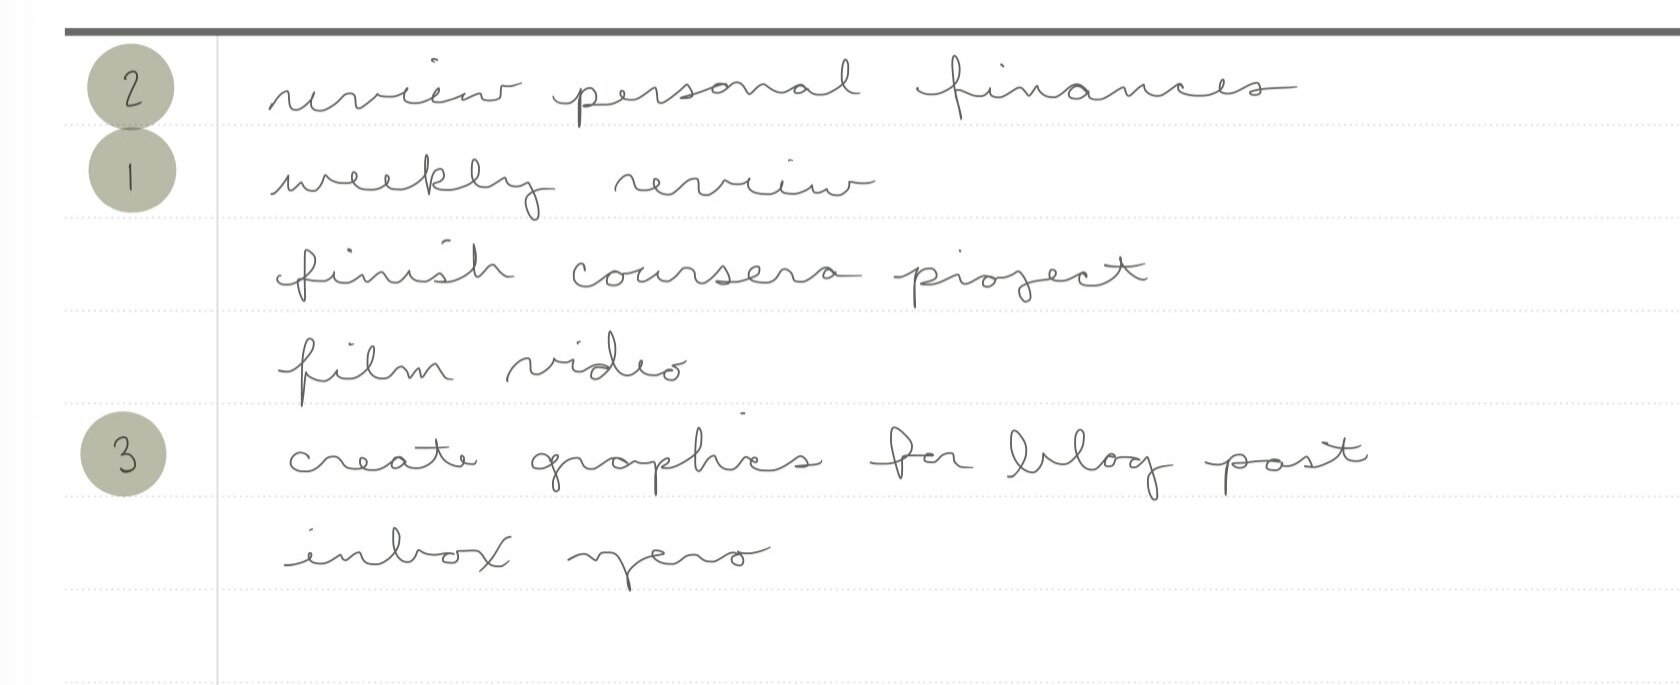 2 review personal finances
1 weekly review
finish coursera project
film video
3 create graphics for blog post
inbox zero